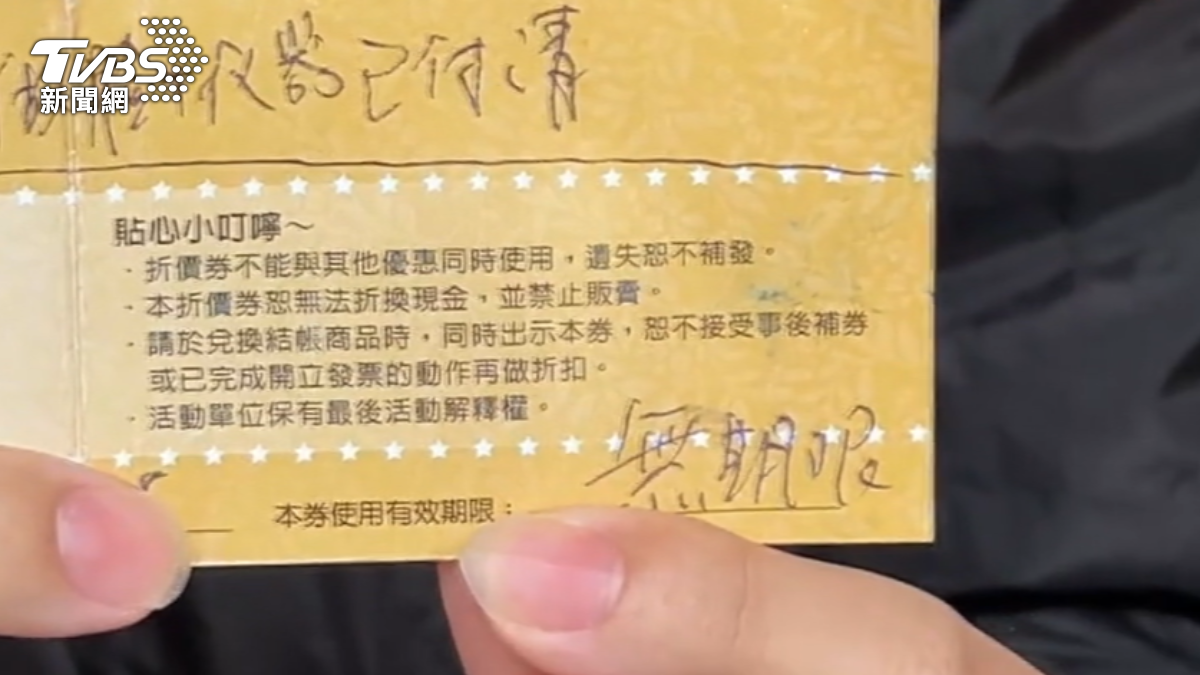 TVBS
新聞網
儀器已付清
貼心小叮嚀～
· 折價券不能與其他優惠同時使用，遺失恕不補發。
· 本折價券恕無法折換現金，並禁止販賣。
· 請於兌換結帳商品時，同時出示本券，恕不接受事後補券
或已完成開立發票的動作再做折扣。
· 活動單位保有最後活動解釋權。
無期限
本券使用有效期限：